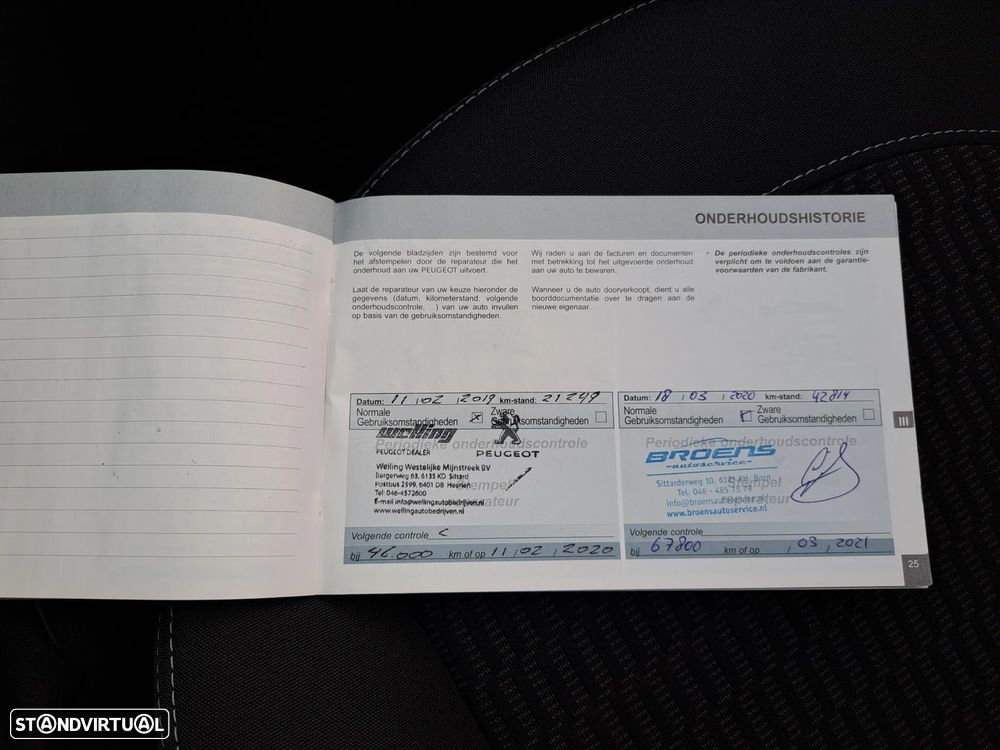 ONDERHOUDSHISTORIE
De volgende bladzijden zijn bestemd voor
het afstempelen door de reparateur die het
onderhoud aan uw PEUGEOT uitvoert.
Laat de reparateur van uw keuze hieronder de
gegevens (datum, kilometerstand, volgende
onderhoudscontrole, ...) van uw auto invullen
op basis van de gebruiksomstandigheden.
Wij raden u aan de facturen en documenten
met betrekking tot het uitgevoerde onderhoud
aan uw auto te bewaren.
Wanneer u de auto doorverkoopt, dient u alle
boorddocumentatie over te dragen aan de
nieuwe eigenaar.
• De periodieke onderhoudscontroles zijn
verplicht om te voldoen aan de garantie-
voorwaarden van de fabrikant.
Datum: 11 / 02 / 2019 km-stand: 21249
Normale
Gebruiksomstandigheden
Zware
Gebruiksomstandigheden
Periodieke onderhoudscontrole
welling
PEUGEOT DEALER
PEUGEOT
Welling Westelijke Mijnstreek BV
Bergerweg 63, 6135 KD Sittard
Postbus 2599, 6401 DB Heerlen
Tel: 046-4572600
E-mail info@wellingautobedrijven.nl
www.wellingautobedrijven.nl
Stempel
reparateur
Volgende controle
bij 46.000 km of op 11 / 02 / 2020
Datum: 18 / 03 / 2020 km-stand: 42814
Normale
Gebruiksomstandigheden
Zware
Gebruiksomstandigheden
Periodieke onderhoudscontrole
BROENS
-autoservice-
Sittarderweg 10, 6121 XH Born
Tel. 046 - 485 75 79
info@broensautoservice.nl
www.broensautoservice.nl
Stempel
reparateur
Volgende controle
bij 67800 km of op / 03 / 2021
III
25
STANDVIRTUAL